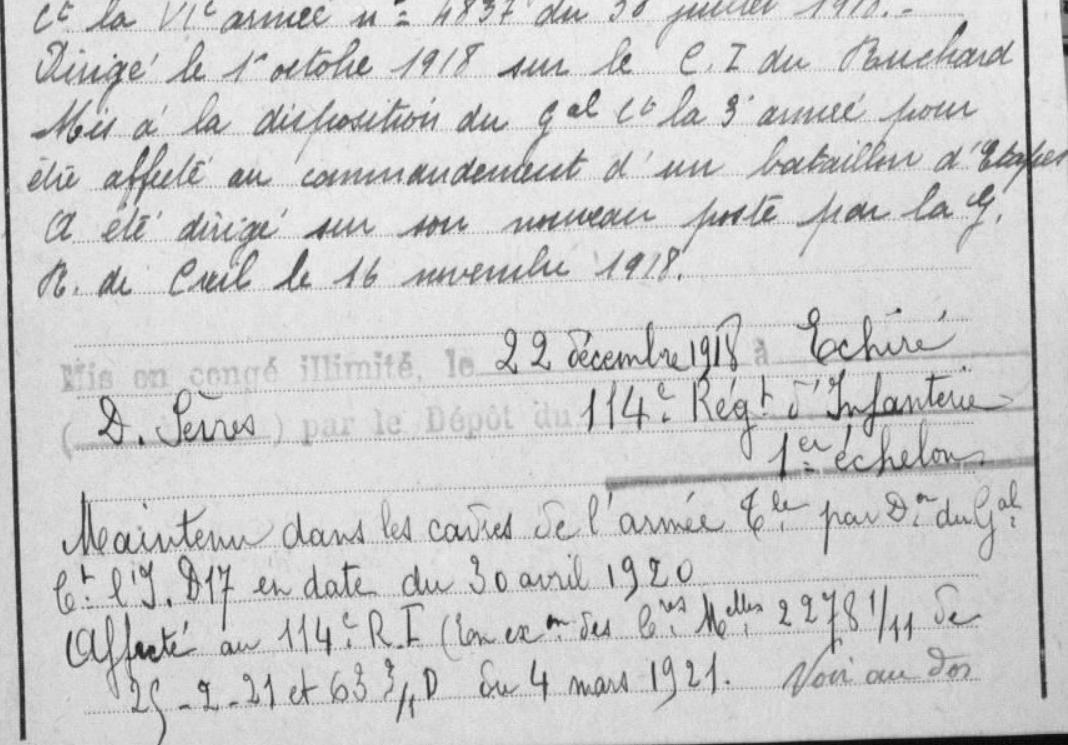 Ct la VIe armée n° 4837 du 30 juillet 1918.-
Dirigé le 1r octobre 1918 sur le C.I du Ruchard
Mis à la disposition du gal Ct la 3e armée pour
être affecté au commandement d'un bataillon d'Etapes
A été dirigé sur son nouveau poste par la G.
R. de Creil le 16 novembre 1918.
Mis en congé illimité, le 22 décembre 1918 à Echiré
(D. Sèvres) par le Dépôt du 114e Régt d'Infanterie
1er échelon.
Maintenu dans les cadres de l'armée Tle par Don du Gal
Ct l'I. D17 en date du 30 avril 1920
Affecté au 114e R.I (en exon des Cres Melles 2278 1/11 de
25-2-21 et 63 3/11 D du 4 mars 1921. Voir au dos